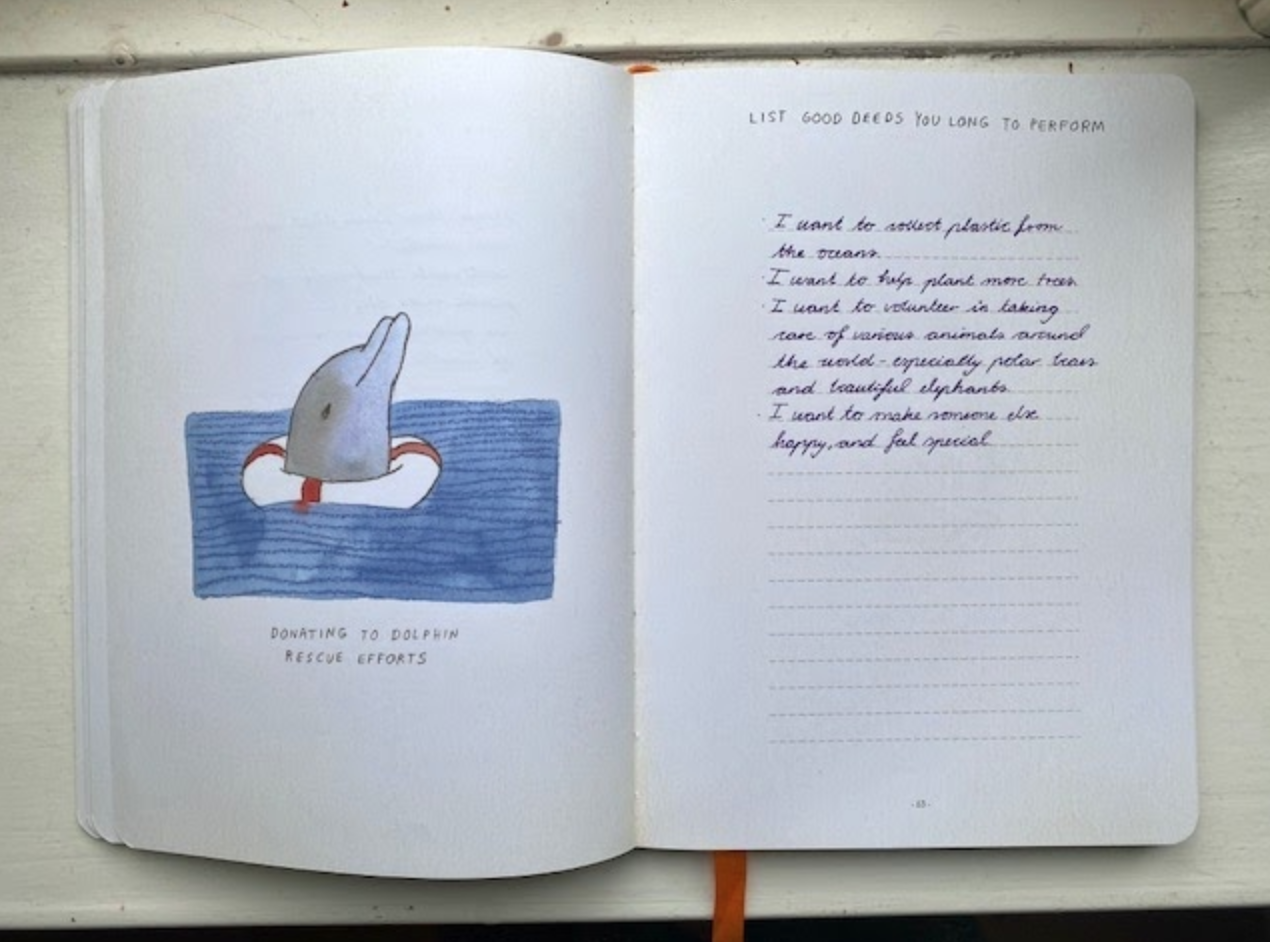 DONATING TO DOLPHIN
RESCUE EFFORTS
LIST GOOD DEEDS YOU LONG TO PERFORM
· I want to collect plastic from
the oceans.
· I want to help plant more trees
· I want to volunteer in taking
care of various animals around
the world - especially polar bears
and beautiful elephants.
· I want to make someone else
happy, and feel special